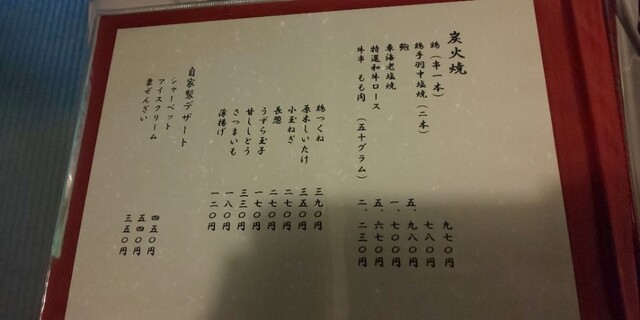 炭火焼
鶏（串一本） 九七〇円
鶏手羽中塩焼（二本） 七八〇円
鮑 五、九八〇円
車海老塩焼 一、七〇〇円
特選和牛ロース 五、六七〇円
牛串 もも肉 （五十グラム） 二、二三〇円
鶏つくね 三九〇円
原木しいたけ 三五〇円
小玉ねぎ 二七〇円
長葱 二七〇円
うずら玉子 一七〇円
甘ししとう 三三〇円
さつまいも 一八〇円
薄揚げ 一二〇円
自家製デザート
シャーベット 四五〇円
アイスクリーム 五四〇円
粟ぜんざい 三五〇円